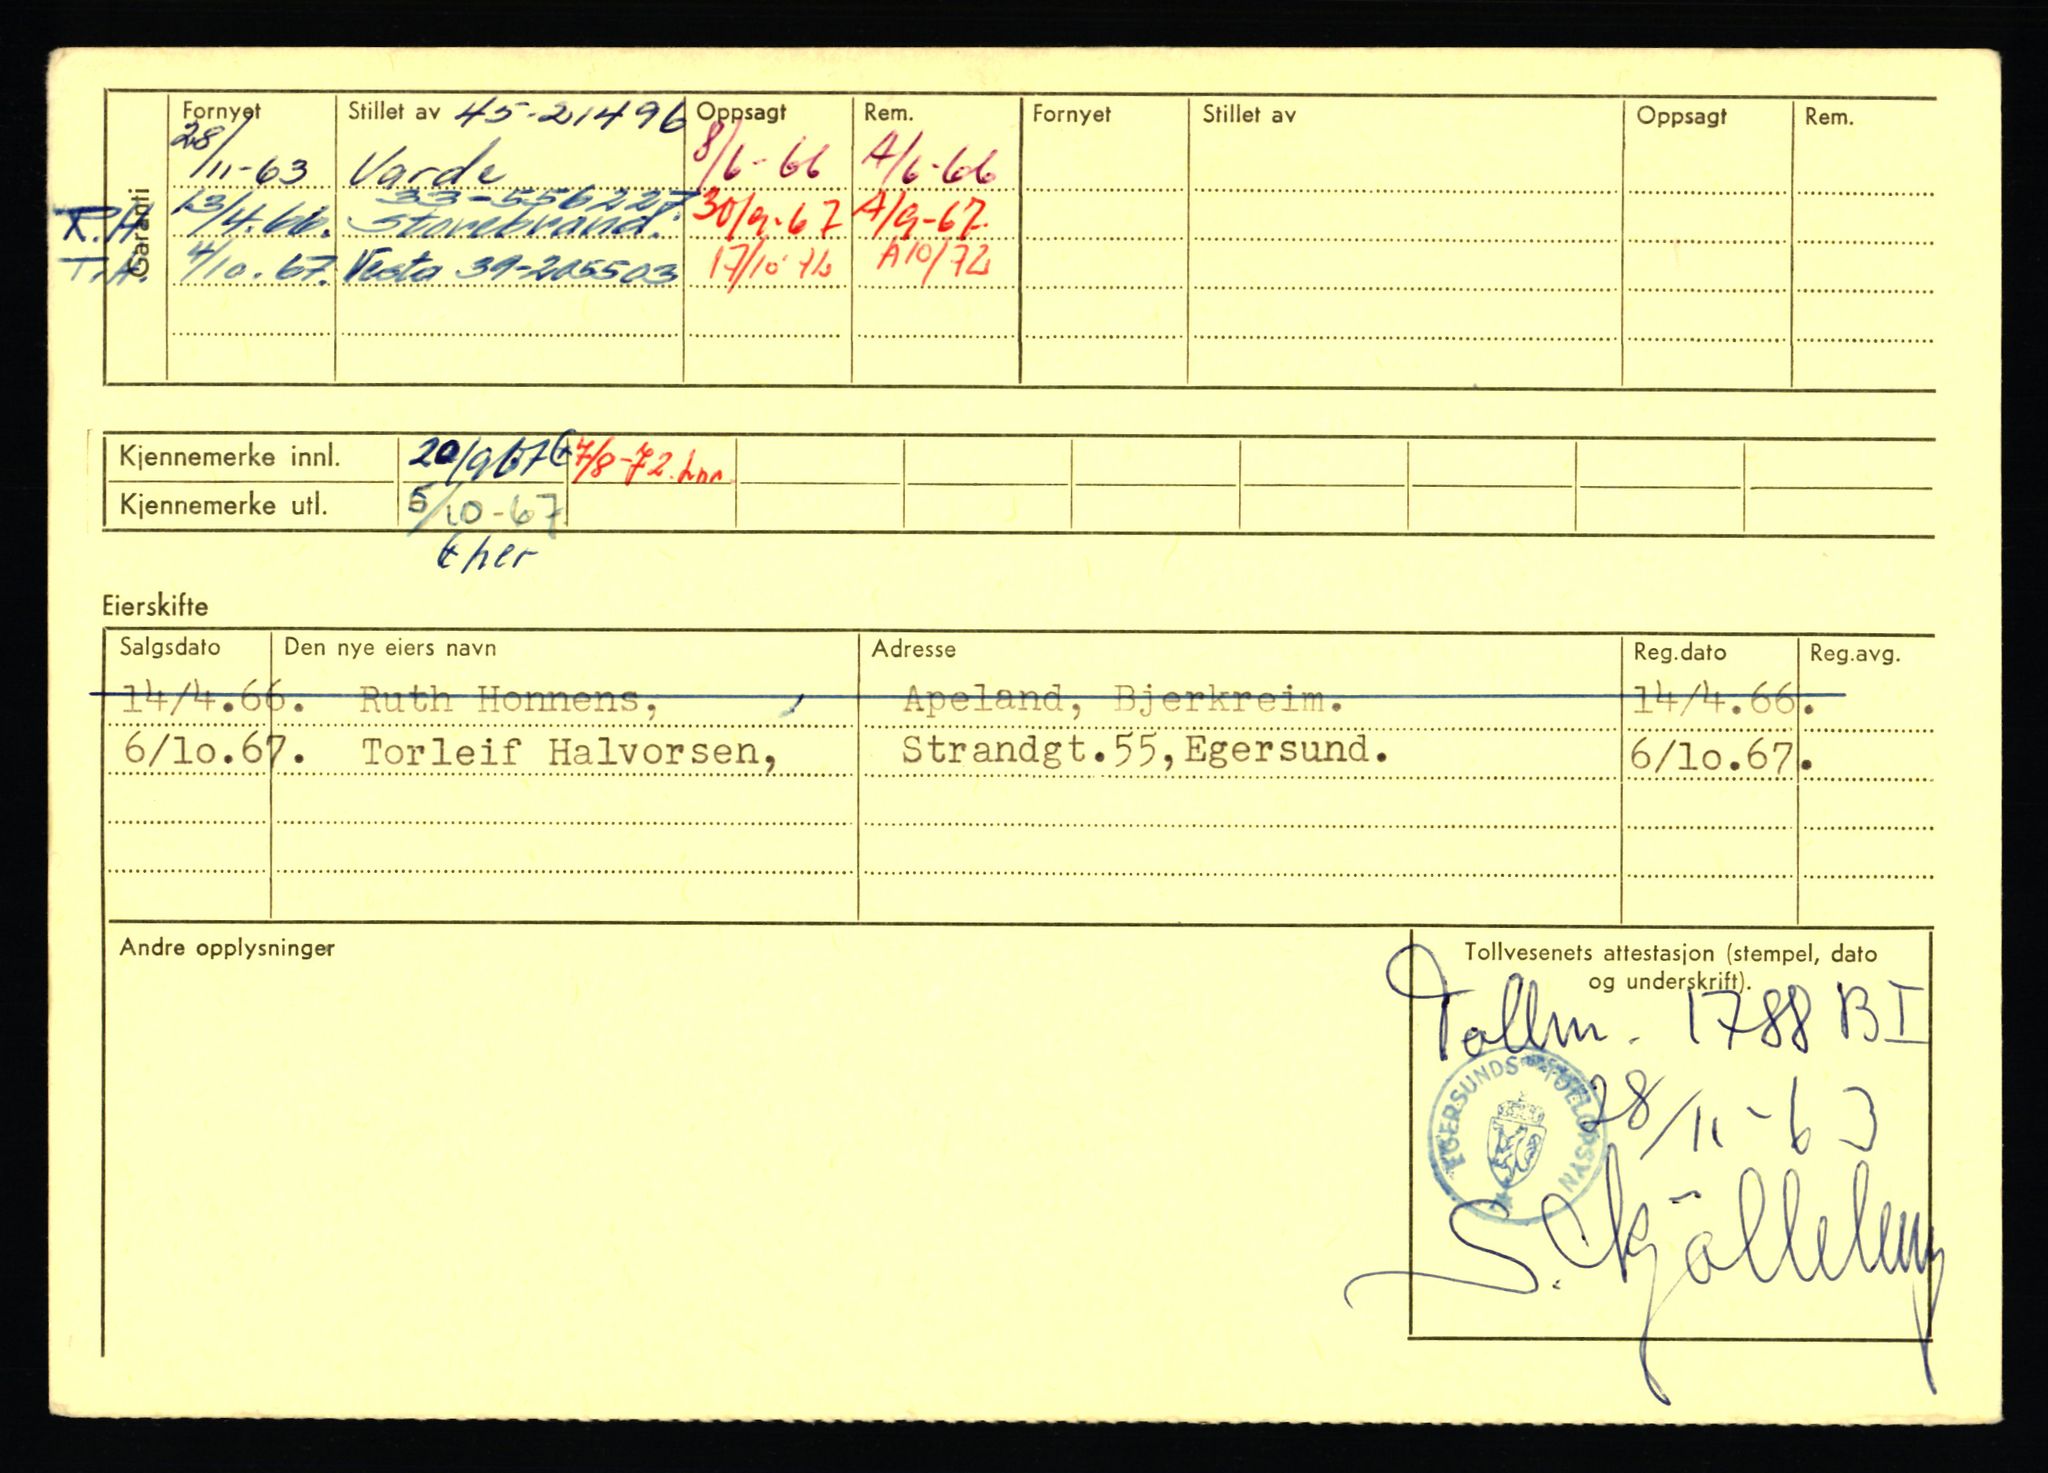 Fornyet Stillet av 45-21496 Oppsagt Rem. Fornyet Stillet av Oppsagt Rem.
Garanti
28/11-63 Varde 8/6-66 A/6-66
33-556227.
R.H. 13/4.66. Storebrand. 30/9-67 A/9-67.
T.H. 4/10.67. Vesta 39-205503 17/10 72 A10/72
Kjennemerke innl. 20/9 67 7/8-72.
Kjennemerke utl. 5/10-67
her
Eierskifte
Salgsdato Den nye eiers navn Adresse Reg.dato Reg.avg.
14/4.66. Ruth Honnens, Apeland, Bjerkreim. 14/4.66.
6/10.67. Torleif Halvorsen, Strandgt.55,Egersund. 6/10.67.
Andre opplysninger
Tollvesenets attestasjon (stempel, dato
og underskrift).
Tollm. 1788 BI
EGERSUNDS TOLLOPPSYN
28/11-63